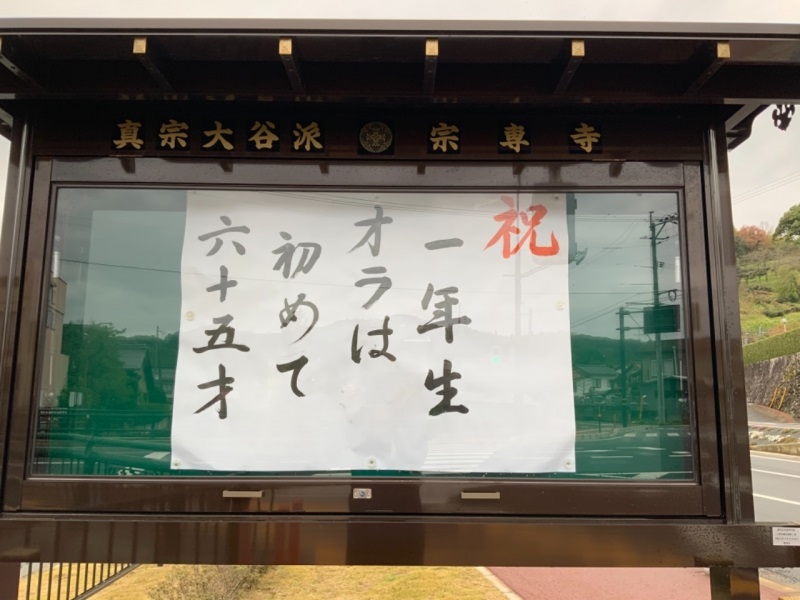 真宗大谷派 宗専寺
祝
一年生
オラは
初めて
六十五才